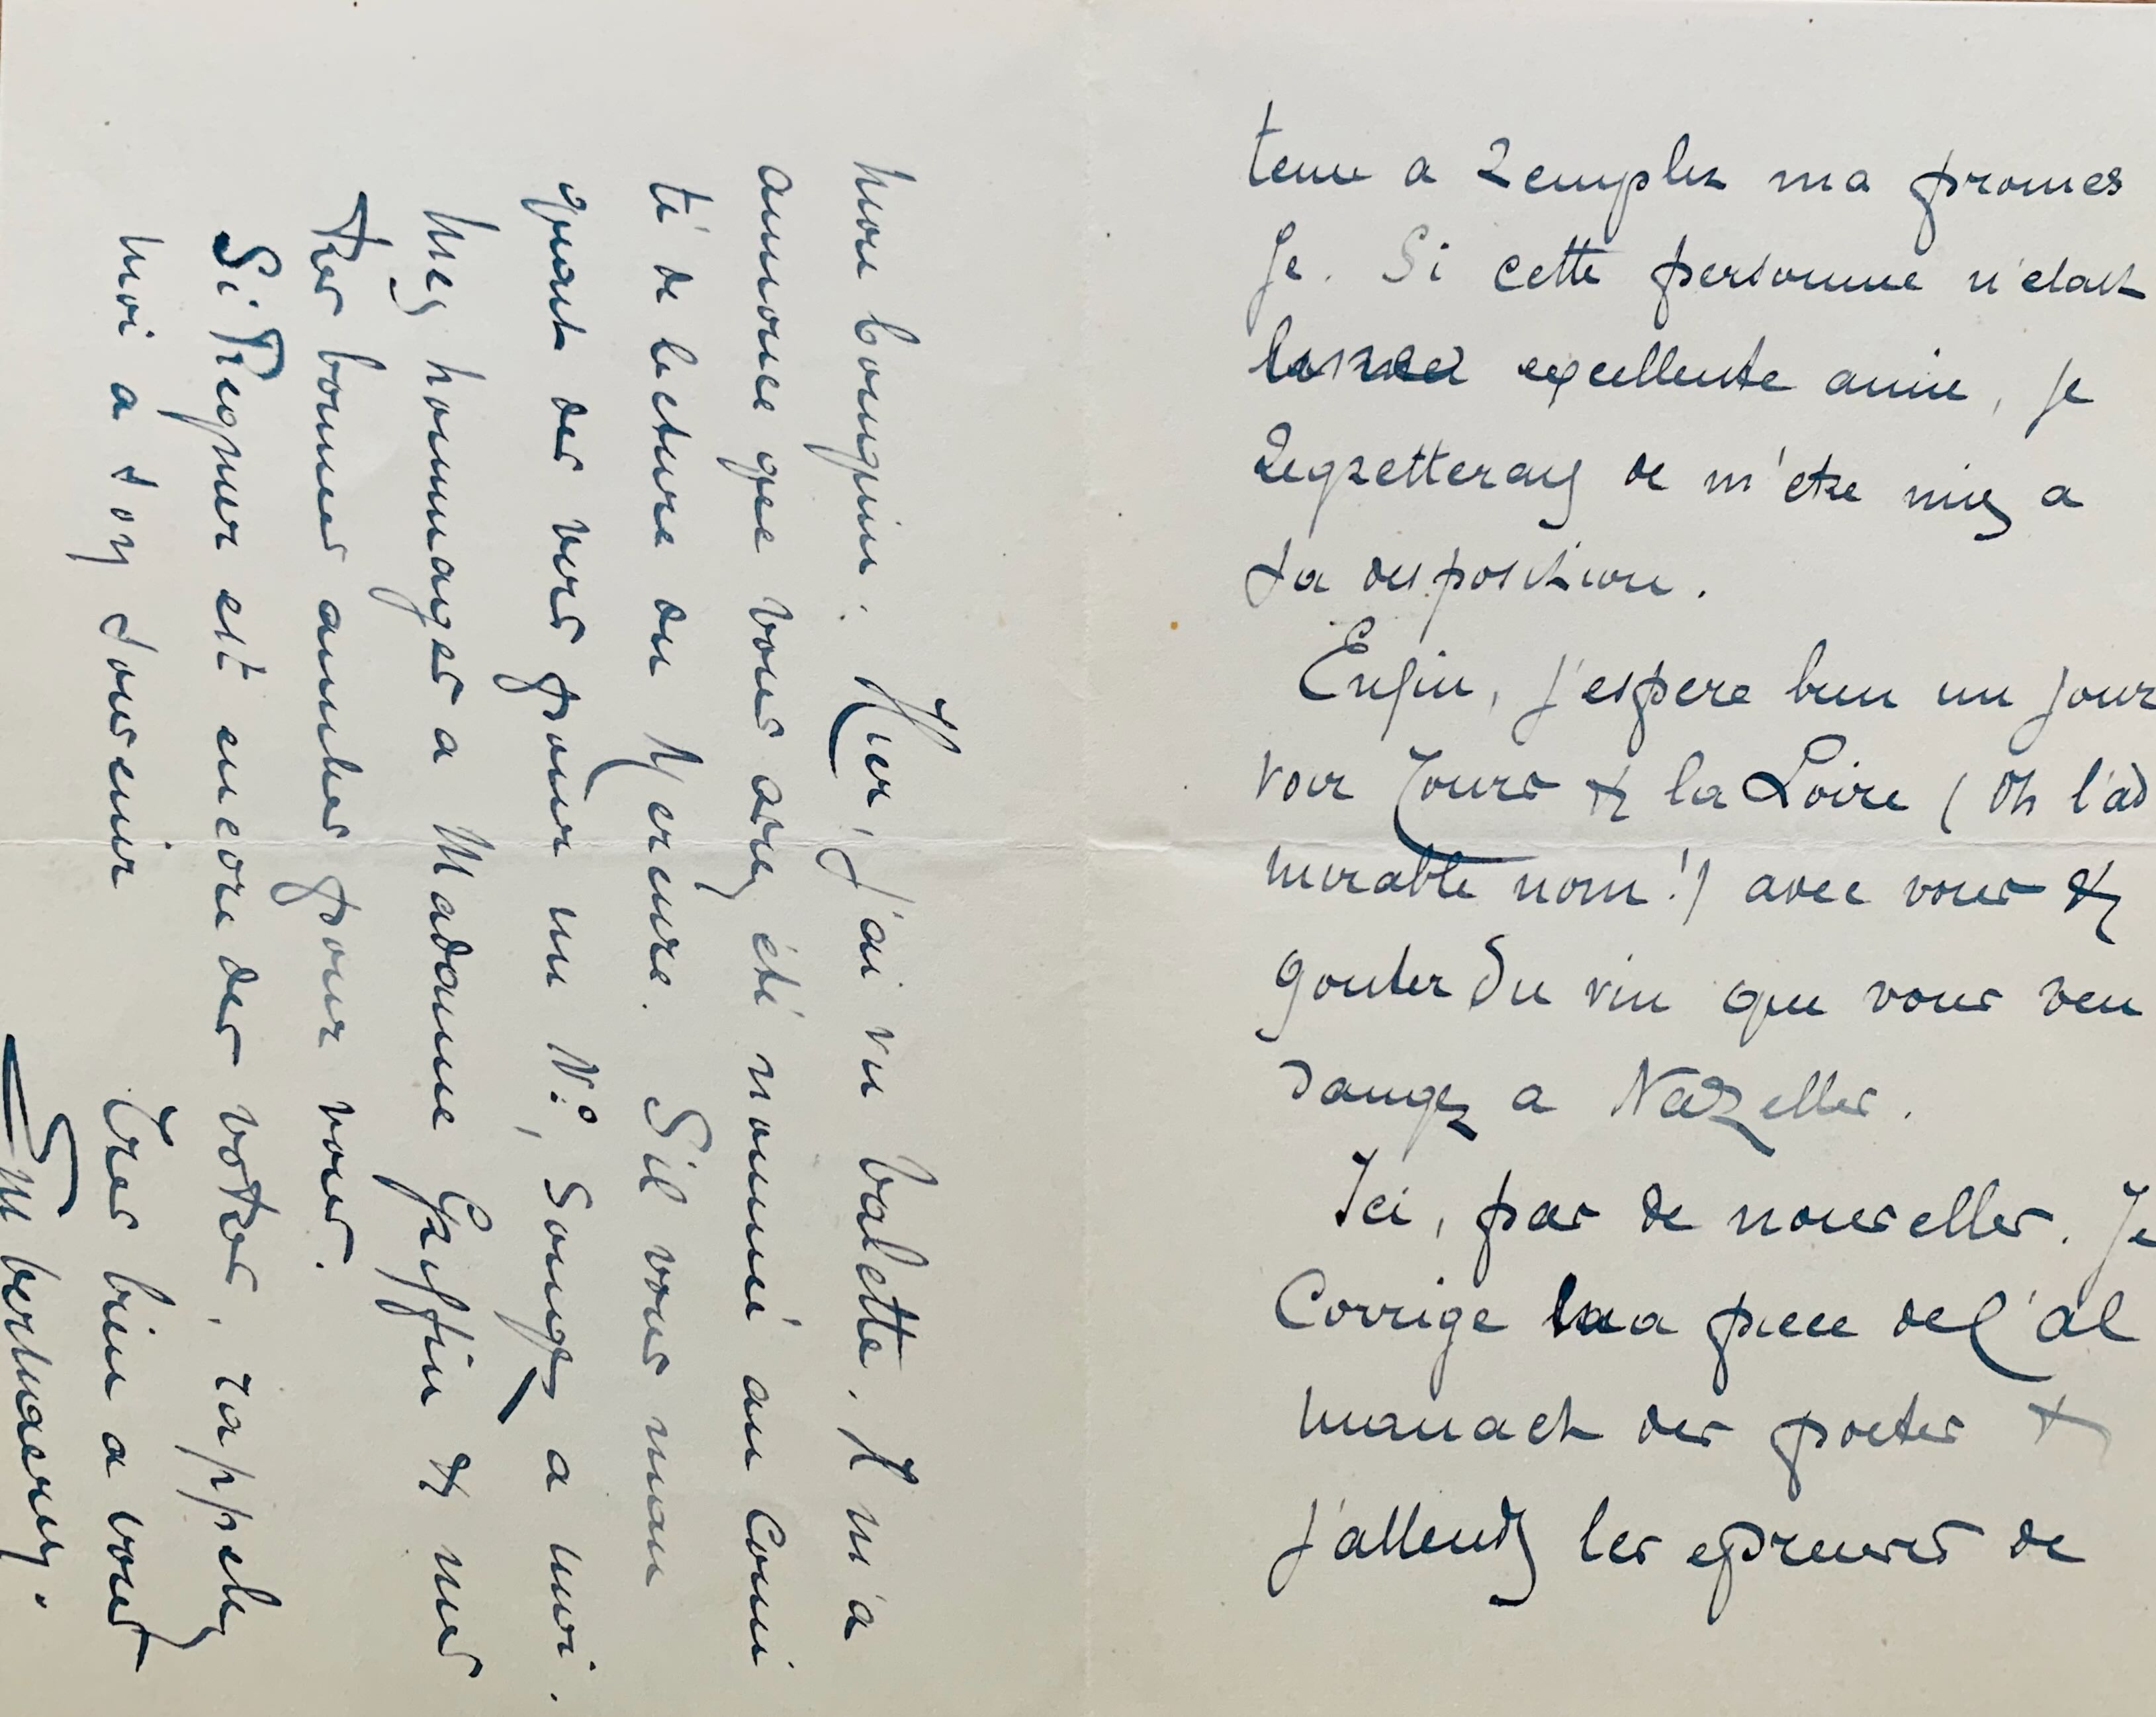 tenu a remplir ma promes
se. Si cette personne n'etait
excellente amie, je
regretterais de m'etre mis a
sa disposition.
Enfin, j'espere bien un jour
voir Tours & la Loire (oh l'ad
mirable nom!) avec vous &
gouter du vin que vous ven
dangez a Nazelles.
Ici, pas de nouvelles. Je
Corrige ma piece de l'al
manach des poetes &
j'attends les epreuves de
mon bouquin. Hier, j'ai vu Valette. Il m'a
annoncé que vous aviez été nommé au Comi
té de lecture du Mercure. S'il vous man
quait des vers pour un N°, songez a moi.
Mes hommages a Madame Griffin & mes
tres bonnes amities pour vous.
Si Regnier est encore des votres, rappelez
moi a son souvenir
Tres bien a vous